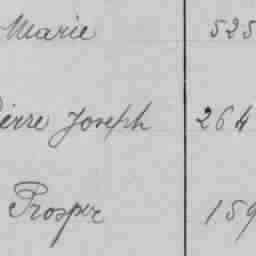 Marie 525
Pierre Joseph 264
Prosper 159